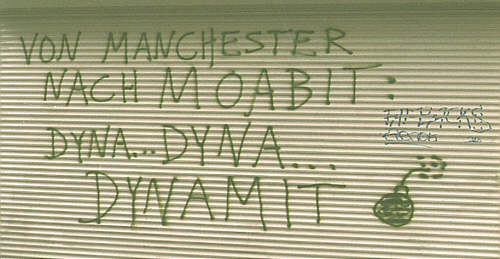 VON MANCHESTER
NACH MOABIT:
DYNA... DYNA...
DYNAMIT